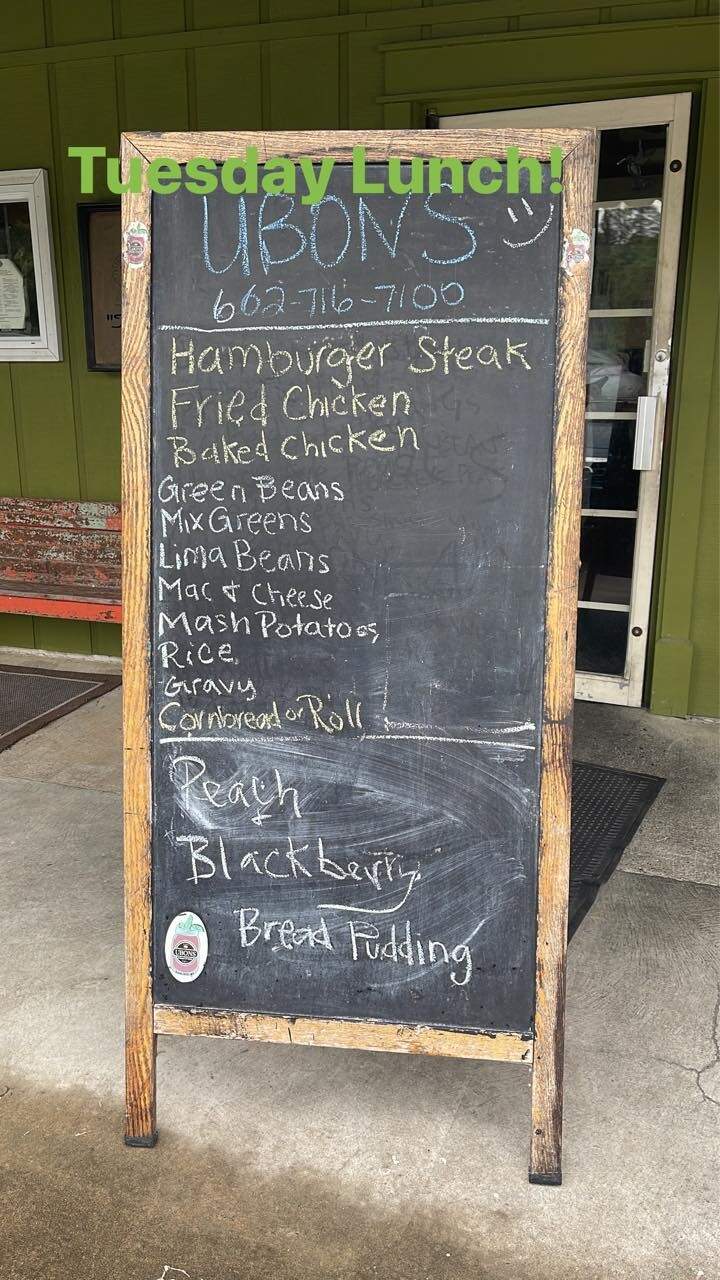 Tuesday Lunch!
UBON'S
662-716-7100
Hamburger Steak
Fried Chicken
Baked Chicken
Green Beans
Mix Greens
Lima Beans
Mac & Cheese
Mash Potatoes
Rice
Gravy
Cornbread or Roll
Peach
Blackberry
Bread Pudding
UBONS